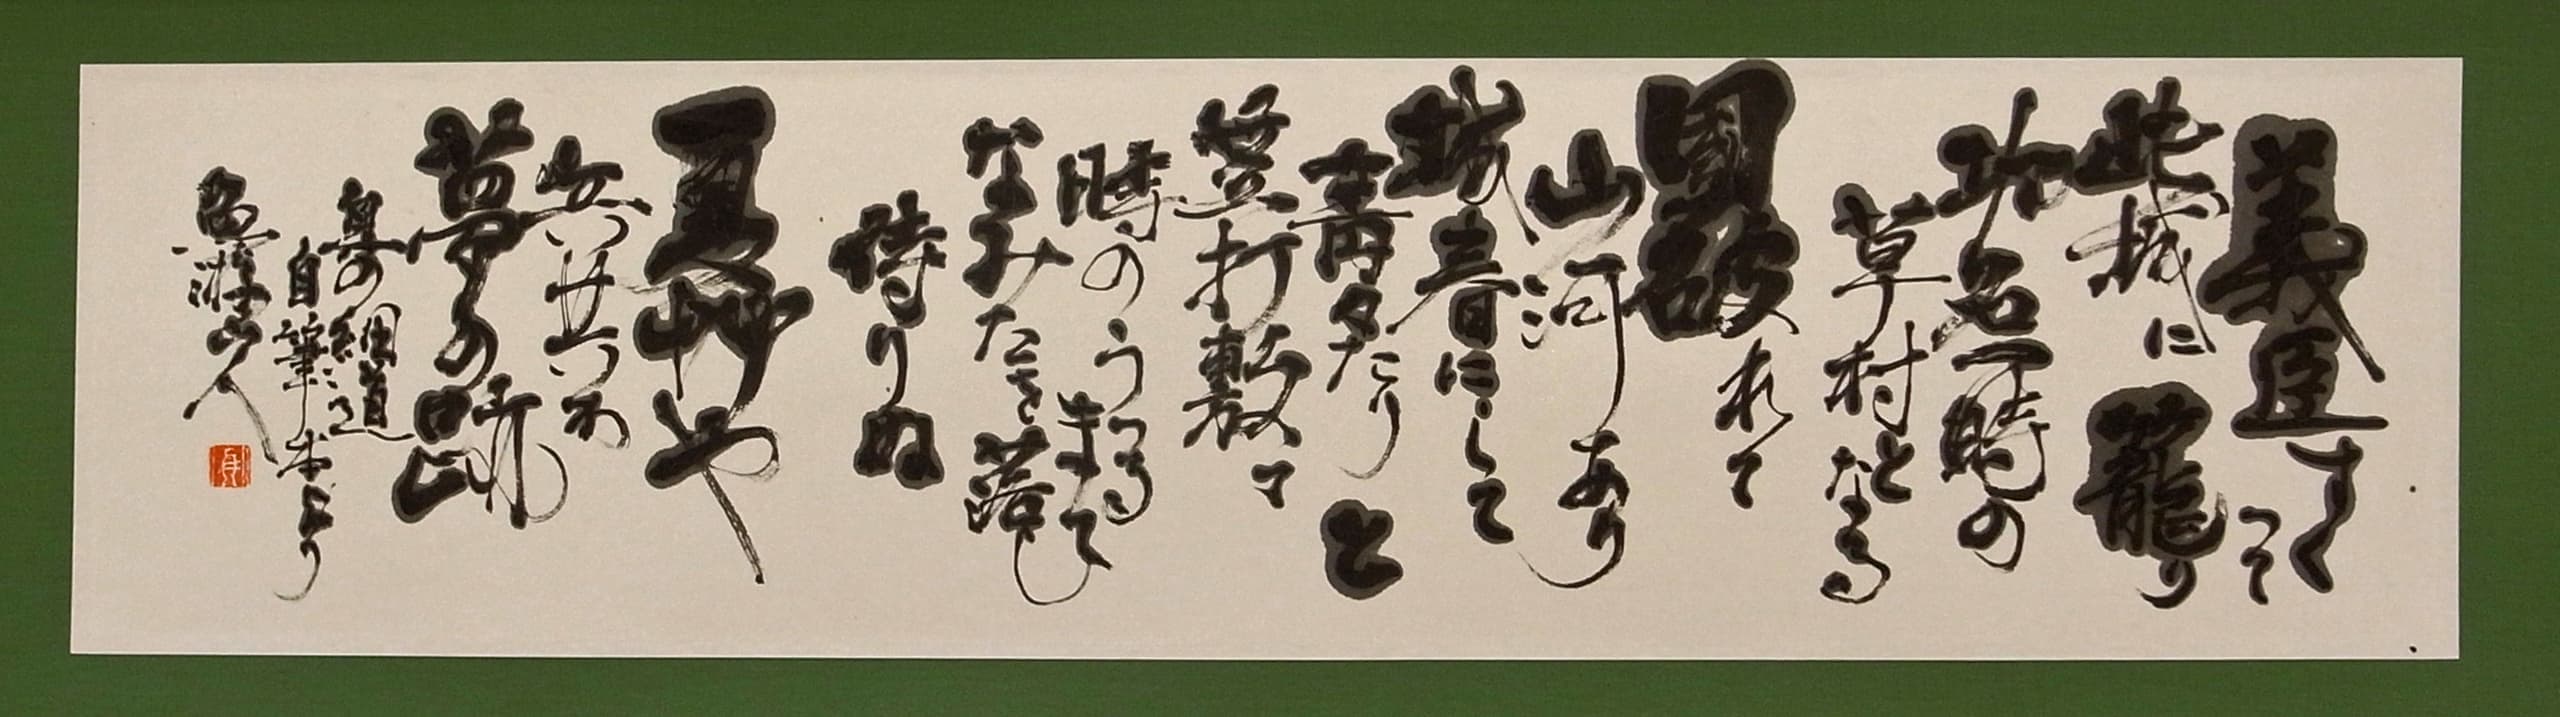 義臣すくつて
此城に籠り
功名一時の
草村となる
國破れて
山河あり
城春にして
青々たりと
笠打敷て
時のうつるまて
なみたを落し
侍りぬ
夏艸や
兵共か
夢の跡
奥の細道
自筆本より
山人